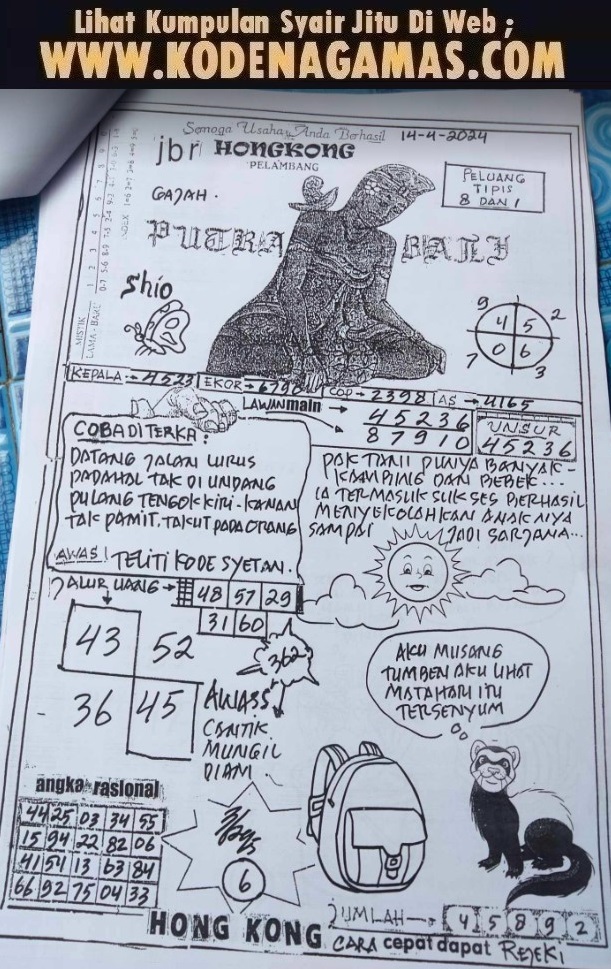 Lihat Kumpulan Syair Jitu Di Web ;
WWW.KODENAGAMAS.COM
Semoga Usaha Anda Berhasil 14-4-2024
jbr HONGKONG
PELAMBANG
GAJAH.
PELUANG
TIPIS
8 DAN 1
PUTRA BALI
Shio
MISTIK
LAMA - BARU
INDEX
9 2
4 5
0 6
7 3
KEPALA → 4523 EKOR → 6790 COP → 2398 AS → 4165
LAWAN main → 45236
87910
UNSUR
45236
COBA DITERKA :
DATANG JALAN LURUS
PADAHAL TAK DI UNDANG
PULANG TENGOK KIRI - KANAN
TAK PAMIT. TAKUT PADA ORANG
AWAS! TELITI KODE SYETAN.
PAK TANI PUNYA BANYAK -
KAMPING DAN BEBEK...
IA TERMASUK SUKSES BERHASIL
MENYEKOLAHKAN ANAK NIYA
SAMPAI JADI SARJANA...
JALUR UANG → 48 57 29
31 60
362
43 52
36 45
AWASS
CANTIK
MUNGIL
DIAM
AKU MUSANG
TUMBEN AKU LIHAT
MATAHARI ITU
TERSENYUM
angka rasional
44 25 03 34 55
15 94 22 82 06
41 54 13 63 84
66 92 75 04 33
6
JUMLAH → 4 5 8 9 2
HONG KONG CARA cepat dapat REJEKI